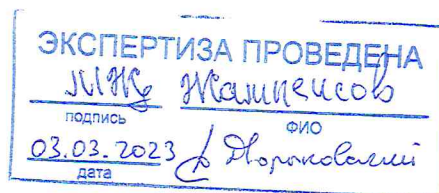 ЭКСПЕРТИЗА ПРОВЕДЕНА
Жампеисов
подпись ФИО
03.03.2023
дата